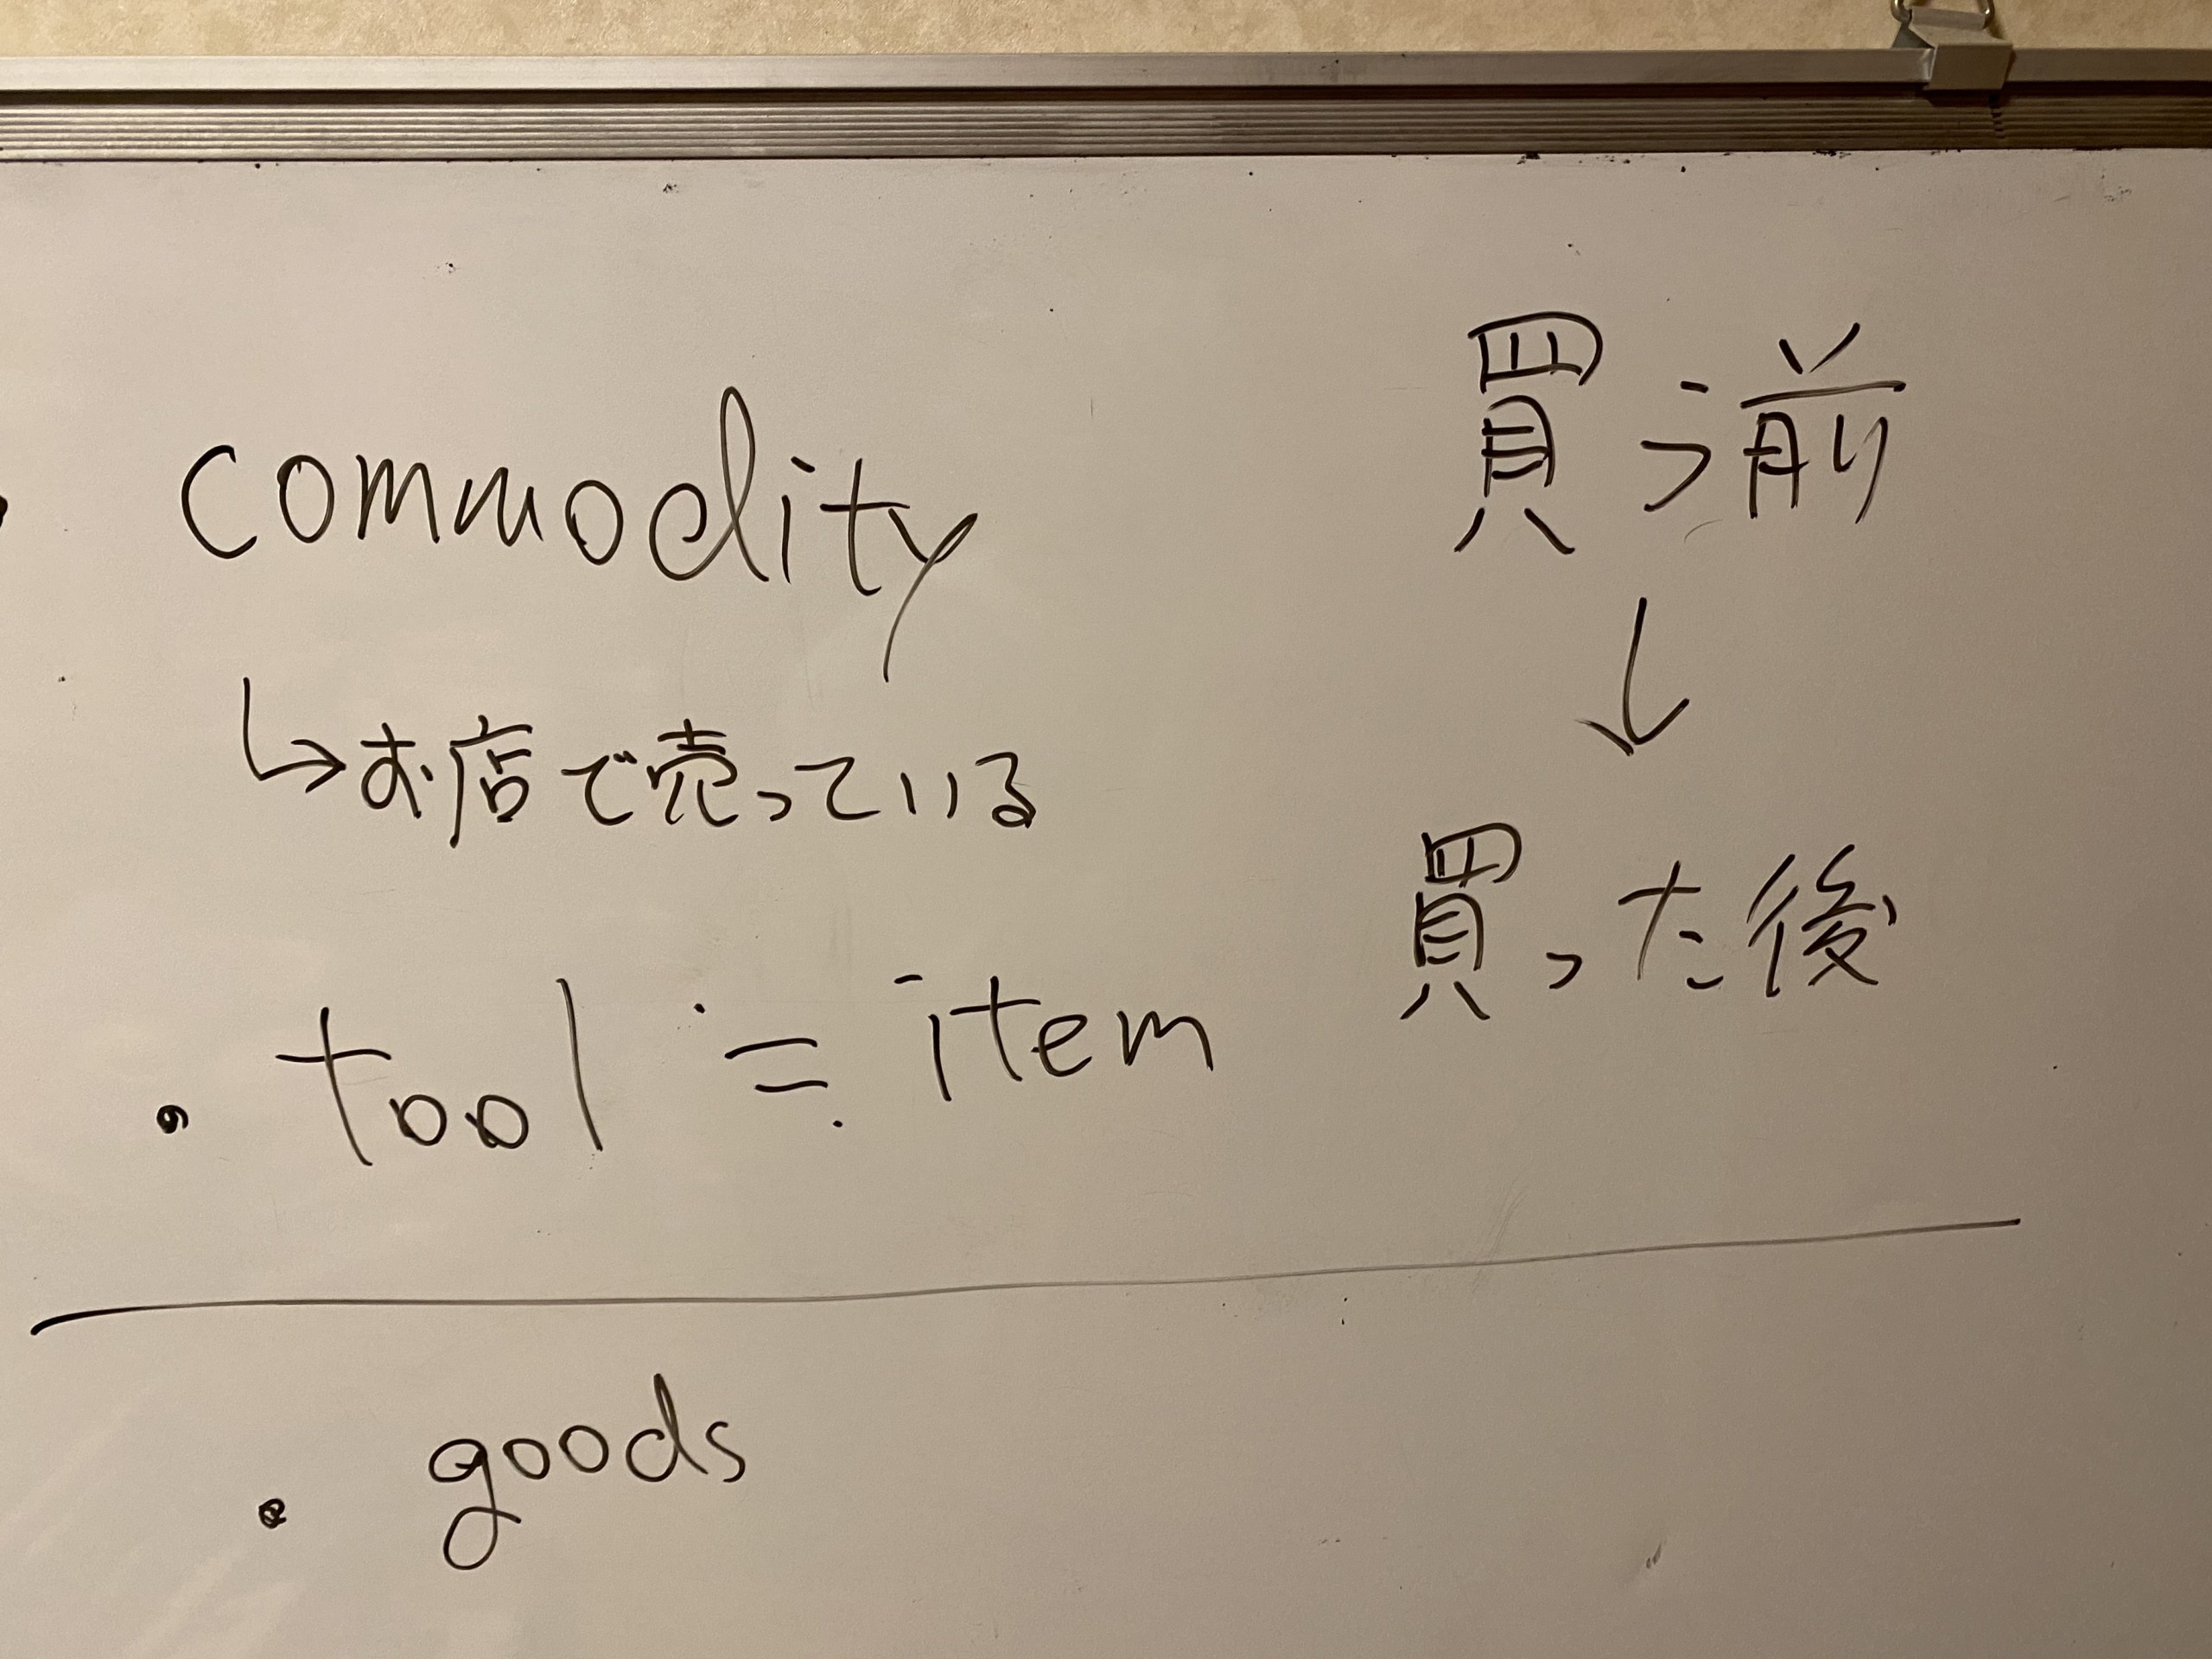 ・commodity
買う前
↓
↳お店で売っている
買った後
・tool ≒ item
・goods